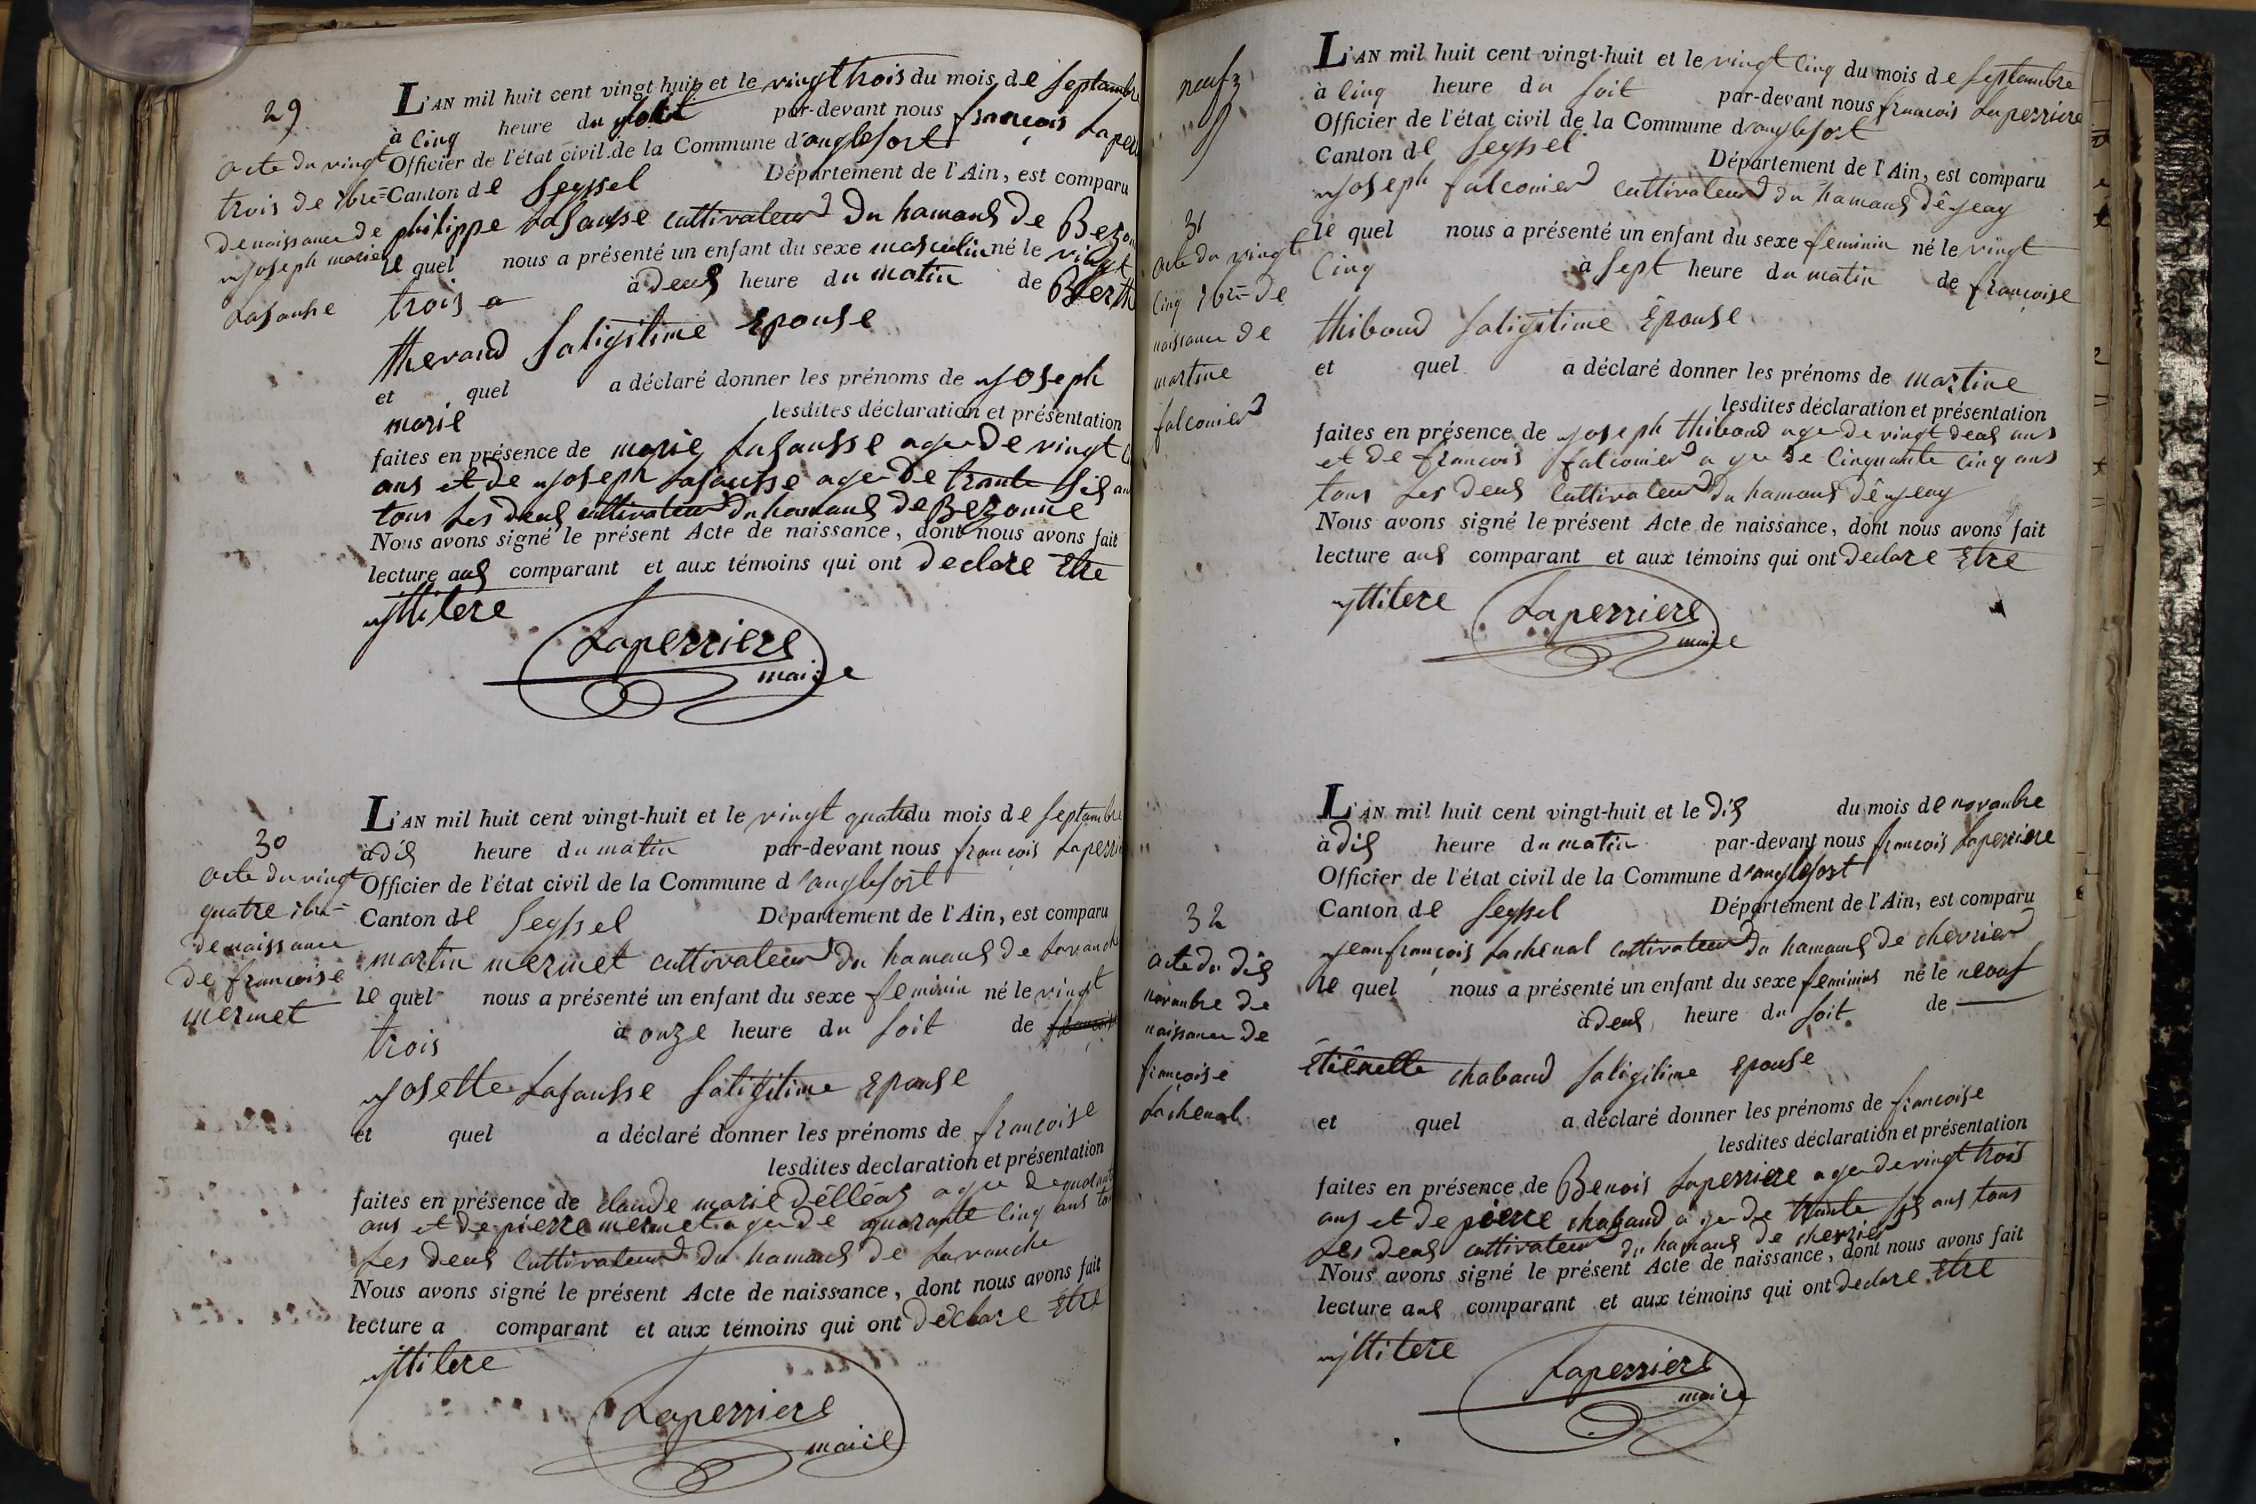 29
acte du vingt
trois de 7bre
de naissance de
joseph marie
Lasausse
L'AN mil huit cent vingt-huit et le vingt trois du mois de septembre
à cinq heure du soit par-devant nous françois Lape
Officier de l'état civil de la Commune d'anglefort
Canton de seyssel Département de l'Ain, est comparu
philippe Lasausse cultivateur du hamaus de Bezon
le quel nous a présenté un enfant du sexe masculin né le vingt
trois à deus heure du matin de Berth
thevand saligitime Epouse
et quel a déclaré donner les prénoms de joseph
marie lesdites déclaration et présentation
faites en présence de marie Lasausse age de vingt
ans et de joseph Lasausse age de trante sis an
tous Les deus cultivateur du hamaus de Bezonne
Nous avons signé le présent Acte de naissance, dont nous avons fait
lecture aus comparant et aux témoins qui ont declare Etre
jllitere
Laperriere
maire
30
acte du vingt
quatre 7bre
de naissance
de françoise
mermet
L'AN mil huit cent vingt-huit et le vingt quatre du mois de septambre
à dis heure du matin par-devant nous françois Laperri
Officier de l'état civil de la Commune d'anglefort
Canton de seyssel Département de l'Ain, est comparu
martin mermet cultivateur du hamaus de Lavanche
le quel nous a présenté un enfant du sexe feminin né le vingt
trois à onze heure du soit de
josette Lasausse saligitime Epouse
et quel a déclaré donner les prénoms de françoise
lesdites declaration et présentation
faites en présence de claude marie délléas age de quarante
ans et de pierre mermet age de quarante cinq ans tous
Les deus cultivateur du hamaus de Lavanche
Nous avons signé le présent Acte de naissance, dont nous avons fait
lecture a comparant et aux témoins qui ont declare Etre
jllitere
Laperriere
maire
neuf
31
acte du vingt
cinq 7bre de
naissance de
martine
falconier
L'AN mil huit cent vingt-huit et le vingt cinq du mois de septambre
à cinq heure du soit par-devant nous francois Laperriere
Officier de l'état civil de la Commune d'anglefort
Canton de seyssel Département de l'Ain, est comparu
joseph falconier cultivateur du hamaus
le quel nous a présenté un enfant du sexe feminin né le vingt
cinq à sept heure du matin de françoise
thiboud saligitime Epouse
et quel a déclaré donner les prénoms de martine
lesdites déclaration et présentation
faites en présence de joseph thiboud age de vingt deus ans
et de francois falconier age de cinquante cinq ans
tous Les deus cultivateur du hamaus
Nous avons signé le présent Acte de naissance, dont nous avons fait
lecture aus comparant et aux témoins qui ont declare Etre
jllitere
Laperriere
maire
32
acte du dis
novanbre de
naissance de
françoise
Lachenal
L'AN mil huit cent vingt-huit et le dis du mois de novanbre
à dis heure du matin par-devant nous francois Laperriere
Officier de l'état civil de la Commune d'anglefort
Canton de seyssel Département de l'Ain, est comparu
jean françois Lachenal cultivateur du hamaus de chevrier
le quel nous a présenté un enfant du sexe feminins né le neouf
à deus heure du soit de
Etiênelle chaband saligitime epouse
et quel a déclaré donner les prénoms de françoise
lesdites déclaration et présentation
faites en présence de Benois Laperriere age de vingt trois
ans et de pierre chaband age de trante sis ans tous
Les deus cultivateur du hamaus de chevrier
Nous avons signé le présent Acte de naissance, dont nous avons fait
lecture aus comparant et aux témoins qui ont declare Etre
jllitere
Laperriere
maire